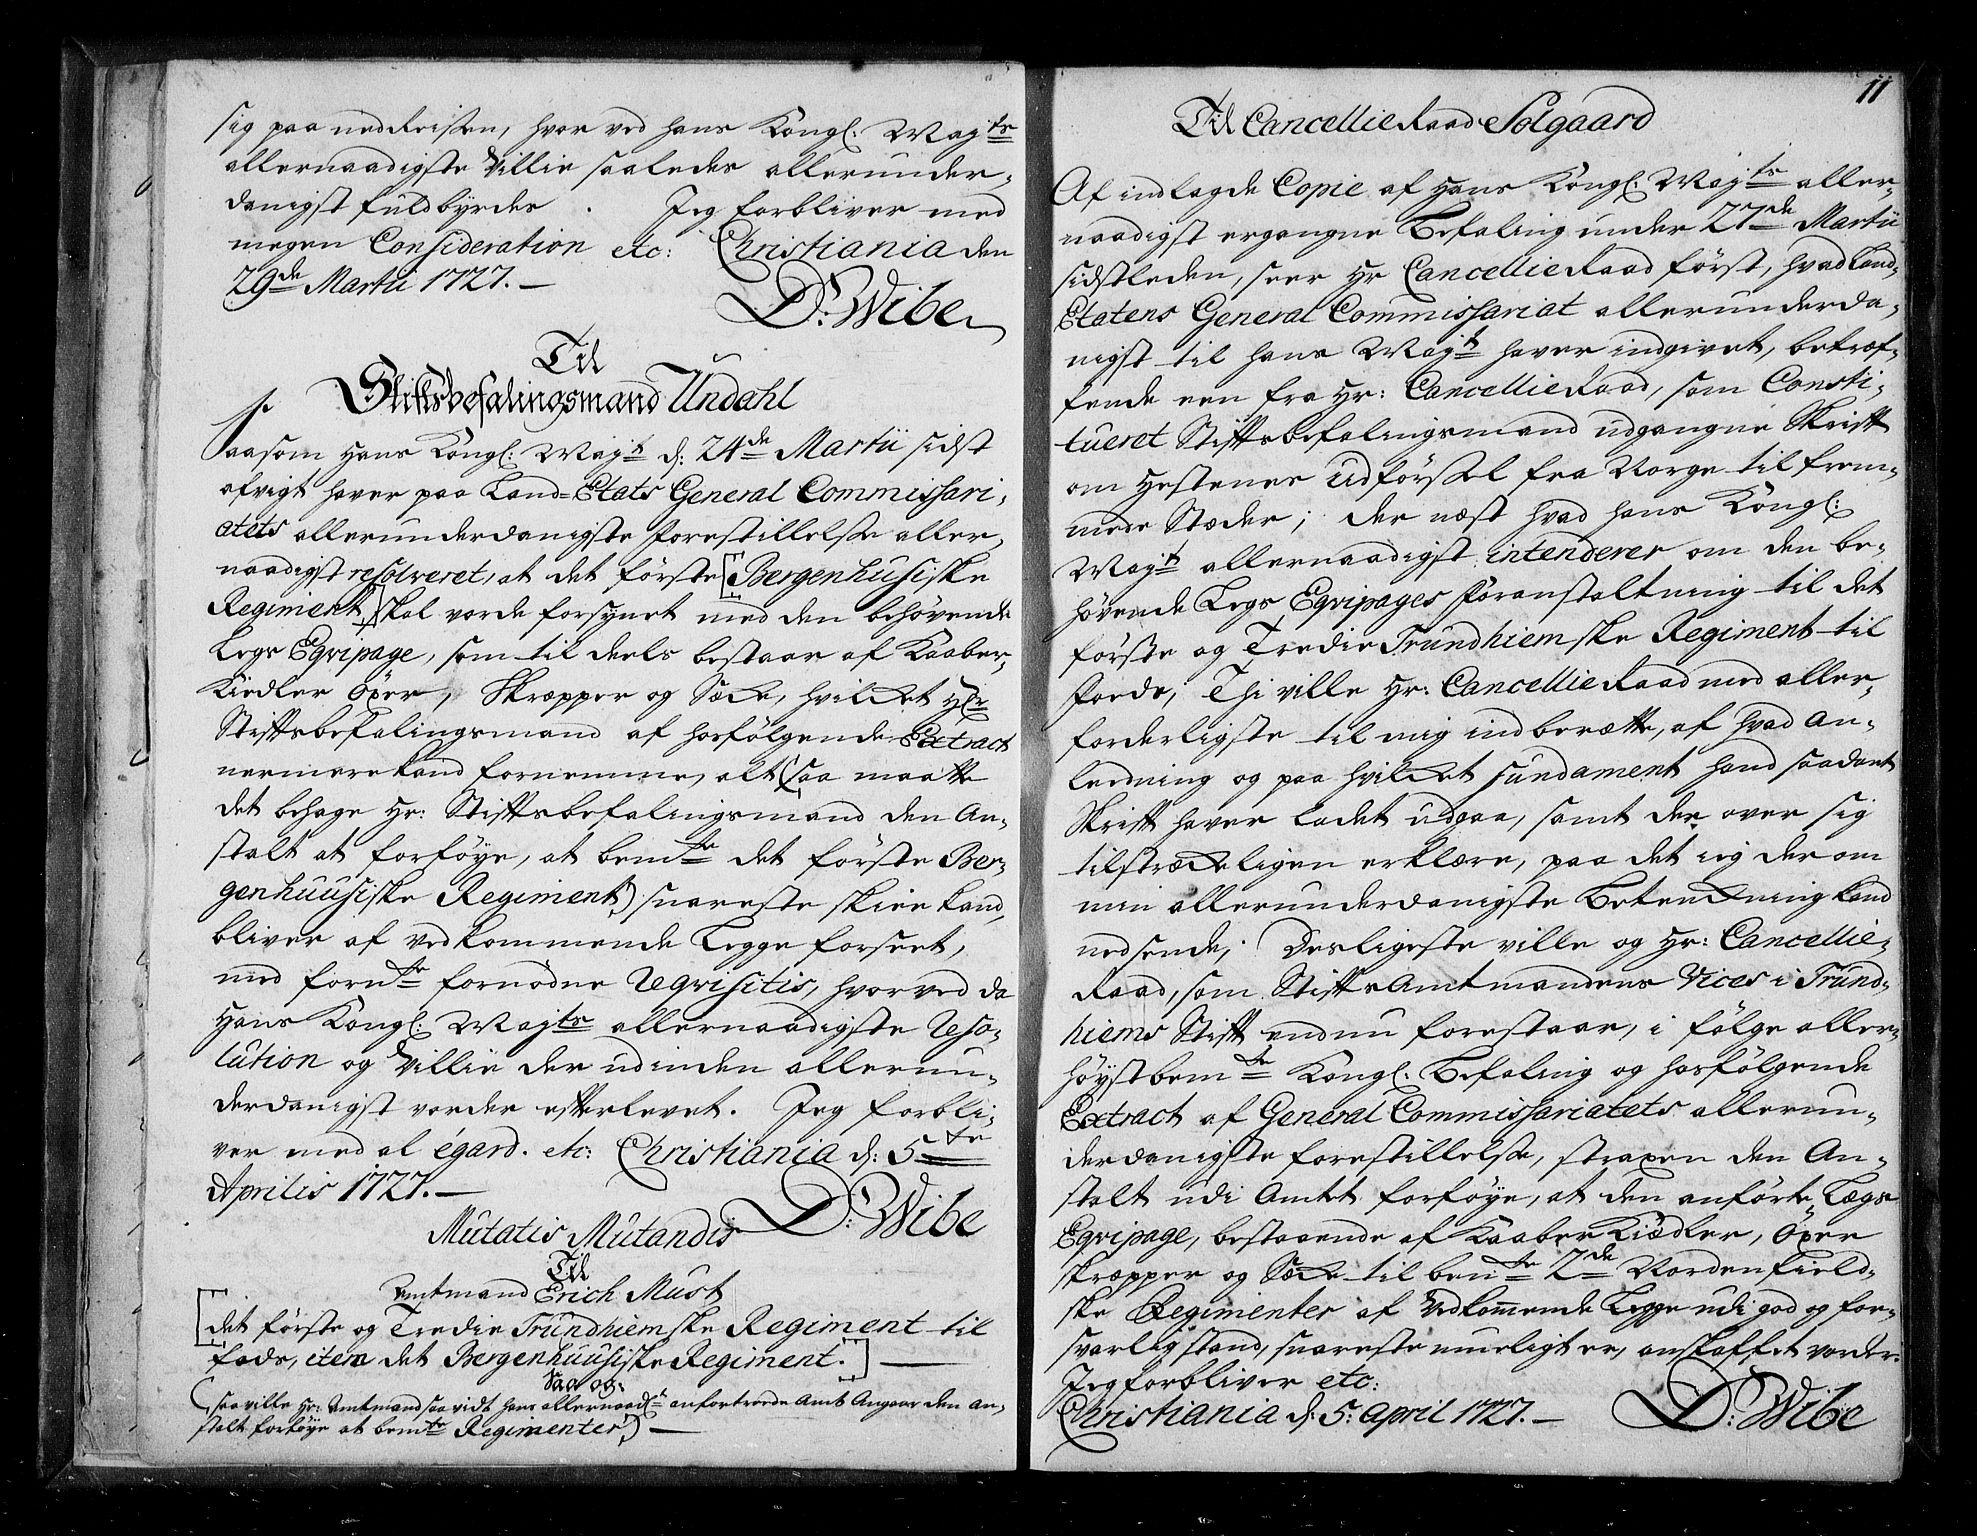 sig paa nedreisen, hvor ved hans Kongl: Majts
allernaadigste Villie saaledes allerunder-
danigst fuldbyrdes. Jeg forbliver med
megen Consideration etc: Christiania den
29de Martii 1727.—
D: Wibe
Til
Stiftsbefalingsmand Undahl
Saasom Hans Kongl: Majt d: 24de Martii sidst
afvigt haver paa Land-Etats General Commissari-
atets allerunderdanigste forestillelse aller-
naadigst resolveret, at det förste [Bergenhusiske
Regiment] skal vorde forsynet med den behövende
Legs Eqvipage, som til deels bestaar af Kaaber-
Kiedler Öxer, Skrepper og Sæcke, hvilcket Hr
Stiftsbefalingsmand af hosfölgende Extract
nermere kand fornemme, alt (saa maatte
det behage Hr: Stiftsbefalingsmand den An-
stalt at forföye, at bemte det förste Ber-
genhuusiske Regiment) snareste skee kand,
bliver af vedkommende Legge forseet,
med forn̅te fornödne Reqvisitis, hvorved da
Hans Kongl: Majts allernaadigste Reso-
lution og Villie der udinden allerun-
derdanigst vorder efterlevet. Jeg forbli-
ver med al égard. etc: Christiania d: 5te
Aprilis 1727.—
D: Wibe
Mutatis Mutandis
Til
Amtmand Erich Must
[det förste og Tredie Trundhiemske Regiment til
fods, item det Bergenhuusiske Regiment.] —
Saa og:
(saa ville Hr: Amtmand saa vidt hans allernaadst anfortroede Amt Angaar den An-
stalt forföye at bemte Regimenter) —
11
Til Cancellie Raad Solgaard
Af indlagde Copie af Hans Kongl: Majts aller-
naadigst ergangne Befaling under 27de Martii
sidstleden, seer Hr Cancellie Raad först, hvad Land-
Etatens General Commissariat allerunderda-
nigst til hans Majt haver indgivet, betref-
fende een fra Hr: Cancellie Raad, som Consti-
tueret Stiftsbefalingsmand udgangne Skrift
om Hestenes Udförsel fra Norge til frem-
mede Stæder; der næst hvad hans Kongl:
Majt allernaadigst intenderer om den be-
hövende Legs Eqvipages foranstaltning til det
förste og Tredie Trundhiemske Regiment til
foeds; Thi ville Hr: Cancellie Raad med aller-
forderligste til mig indberætte, af hvad An-
ledning og paa hvilcket fundament hand saadant
Skrift haver ladet udgaa, samt der over sig
tilstræckeligen erklære, paa det ieg der om
min allerunderdanigste Betenckning kand
nedsende; Desligeste ville og Hr: Cancellie-
Raad, som Stifts Amtmandens Vices i Trund-
hiems Stift endnu forestaar, i fölge aller-
höystbemte Kongl: Befaling og hosfölgende
Extract af General Commissariatets allerun-
derdanigste forestillelse, straxen den An-
stalt udi Amtet forföye, at den anförte Lægs
Eqvipage, bestaaende af Kaaber Kiædler, Öxer
skrepper og Sæcke til bemte 2de Nordenfield-
ske Regimenter af Vedkommende Legge udi god og for-
svarlig stand, snareste mueligt er, anskaffet vorder.
Jeg forbliver etc:
Christiania d: 5: April 1727.—
D: Wibe